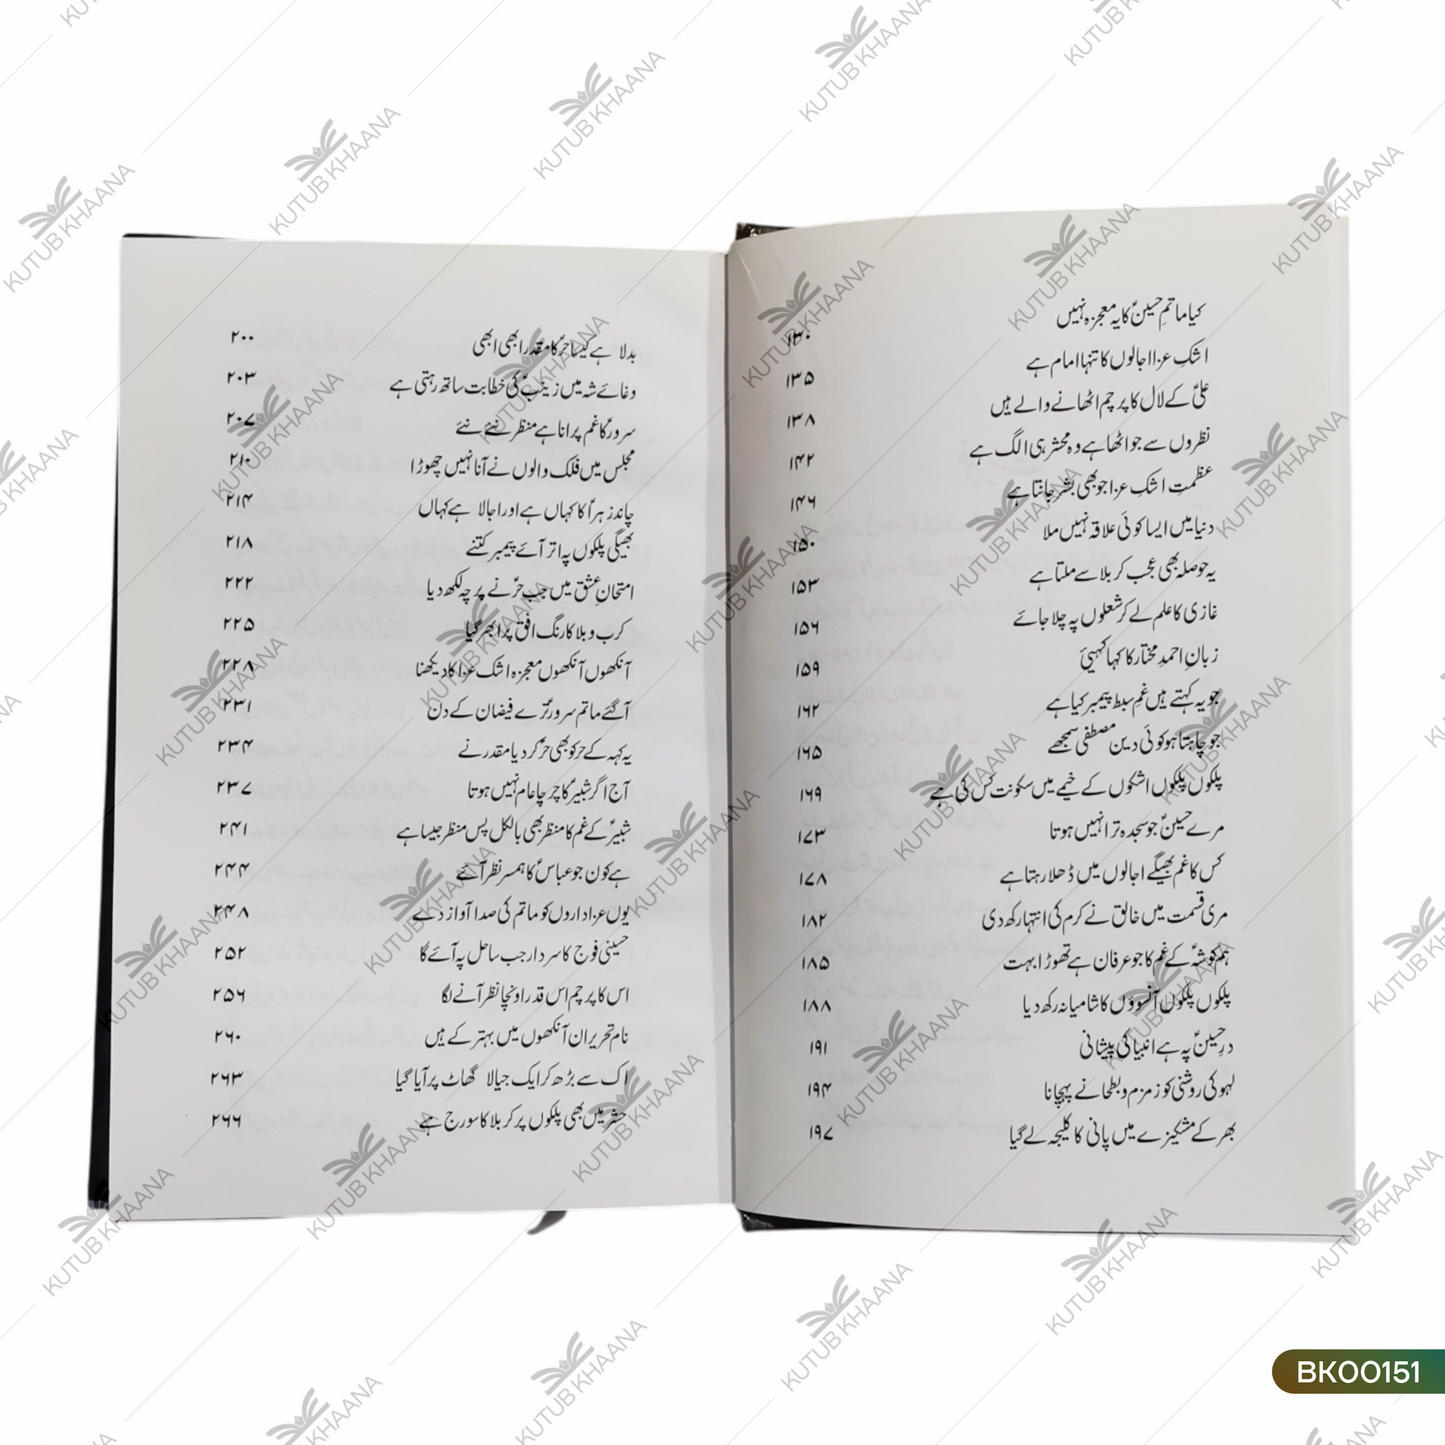 کیا ماتمِ حسینؑ کا یہ معجزہ نہیں ۱۳۰
اشکِ عزا اجالوں کا تنہا امام ہے ۱۳۵
علیؑ کے لال کا پرچم اٹھانے والے ہیں ۱۳۸
نظروں سے جو اٹھا ہے وہ محشر ہی الگ ہے ۱۴۲
عظمتِ اشکِ عزا جو بھی بشر جانتا ہے ۱۴۶
دنیا میں ایسا کوئی علاقہ نہیں ملا ۱۵۰
یہ حوصلہ بھی عجب کربلا سے ملتا ہے ۱۵۳
غازی کا علم لے کر شعلوں پہ چلا جائے ۱۵۶
زبانِ احمدِ مختار کا کہا کہیئ ۱۵۹
جو یہ کہتے ہیں غمِ سبط پیمبر کیا ہے ۱۶۲
جو چاہتا ہو کوئی دین مصطفی سمجھے ۱۶۵
پلکوں پلکوں اشکوں کے خیمے میں سکونت کس کی ہے ۱۶۹
مرے حسینؑ جو سجدہ ترا نہیں ہوتا ۱۷۳
کس کا غم بھیگے اجالوں میں ڈھلا رہتا ہے ۱۷۸
مری قسمت میں خالق نے کرم کی انتہا رکھ دی ۱۸۲
ہم کو شہؑ کے غم کا جو عرفان ہے تھوڑا بہت ۱۸۵
پلکوں پلکوں آنسوؤں کا شامیانہ رکھ دیا ۱۸۸
درِ حسینؑ پہ ہے انبیا کی پیشانی ۱۹۱
لہو کی روشنی کو زمزم و بطحا نے پہچانا ۱۹۴
بھر کے مشکیزے میں پانی کا کلیجہ لے گیا ۱۹۷
بدلا ہے کیسا حرؑ کا مقدر ابھی ابھی ۲۰۰
دعائے شہ میں زینبؑ کی خطابت ساتھ رہتی ہے ۲۰۳
سرورؑ کا غم پرانا ہے منظر نئے نئے ۲۰۷
مجلس میں فلک والوں نے آنا نہیں چھوڑا ۲۱۰
چاند زہراؑ کا کہاں ہے اور اجالا ہے کہاں ۲۱۴
بھیگی پلکوں پہ اتر آئے پیمبر کتنے ۲۱۸
امتحانِ عشق میں جب حرؑ نے پرچہ لکھ دیا ۲۲۲
کرب و بلا کا رنگ افق پر ابھر گیا ۲۲۵
آنکھوں آنکھوں معجزہ اشک عزا کا دیکھنا ۲۲۸
آگئے ماتم سرورؑ ترے فیضان کے دن ۲۳۱
یہ کہہ کے حر کو بھی حرؑ کر دیا مقدر نے ۲۳۴
آج اگر شبیرؑ کا چرچا عام نہیں ہوتا ۲۳۷
شبیرؑ کے غم کا منظر بھی بالکل پس منظر جیسا ہے ۲۴۱
ہے کون جو عباسؑ کا ہمسر نظر آئے ۲۴۴
یوں عزاداروں کو ماتم کی صدا آواز دے ۲۴۸
حسینی فوج کا سردار جب ساحل پہ آئے گا ۲۵۲
اس کا پرچم اس قدر اونچا نظر آنے لگا ۲۵۶
نام تحریر ان آنکھوں میں بہتر کے ہیں ۲۶۰
اک سے بڑھ کر ایک جیالا گھاٹ پر آیا گیا ۲۶۳
حشر میں بھی پلکوں پر کربلا کا سورج ہے ۲۶۶
KUTUB KHAANA
BK00151